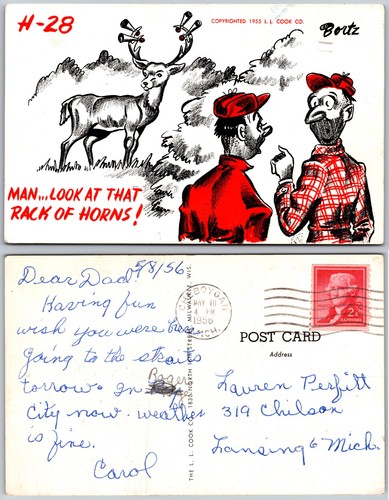 H-28
COPYRIGHTED 1953 L. L. COOK CO.
Bortz
MAN...LOOK AT THAT
RACK OF HORNS!
5/8/56
Dear Dad!
Having fun
wish you were here
going to the straits
torrow. In Rogers
City now. weather
is fine.
Carol
THE L. L. COOK CO.
MILWAUKEE, WIS.
CHEBOYGAN
MAY 10
4 PM
1956
MICH.
2¢
POST CARD
Address
Lauren Perfitt
319 Chilson
Lansing 6 Mich.